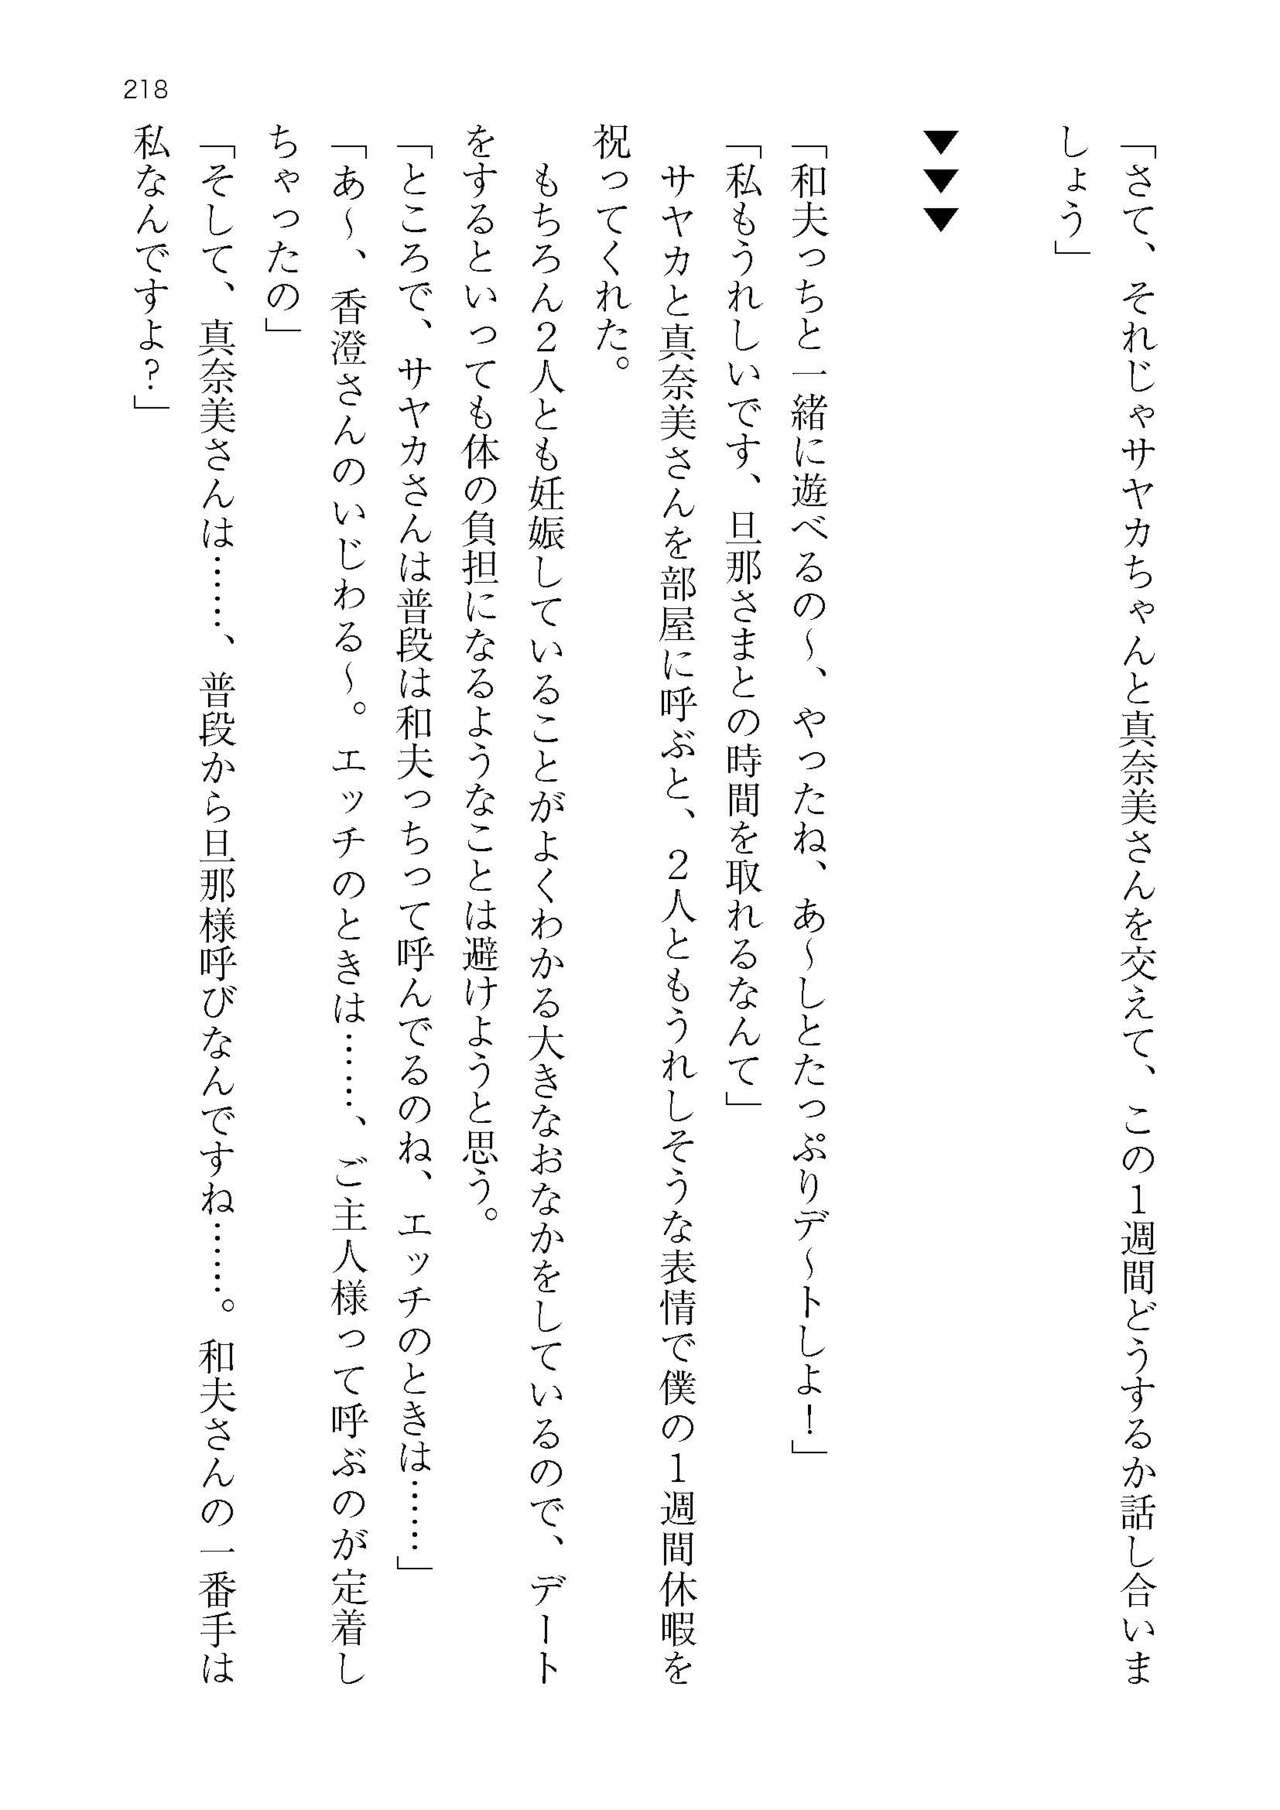 218
「さて、それじゃサヤカちゃんと真奈美さんを交えて、この1週間どうするか話し合いま
しょう」
▼▼▼
「和夫っちと一緒に遊べるの〜、やったね、あ〜しとたっぷりデ〜トしよ！」
「私もうれしいです、旦那さまとの時間を取れるなんて」
　サヤカと真奈美さんを部屋に呼ぶと、2人ともうれしそうな表情で僕の1週間休暇を
祝ってくれた。
　もちろん2人とも妊娠していることがよくわかる大きなおなかをしているので、デート
をするといっても体の負担になるようなことは避けようと思う。
「ところで、サヤカさんは普段は和夫っちって呼んでるのね、エッチのときは……」
「あ〜、香澄さんのいじわる〜。エッチのときは……、ご主人様って呼ぶのが定着し
ちゃったの」
「そして、真奈美さんは……、普段から旦那様呼びなんですね……。和夫さんの一番手は
私なんですよ？」